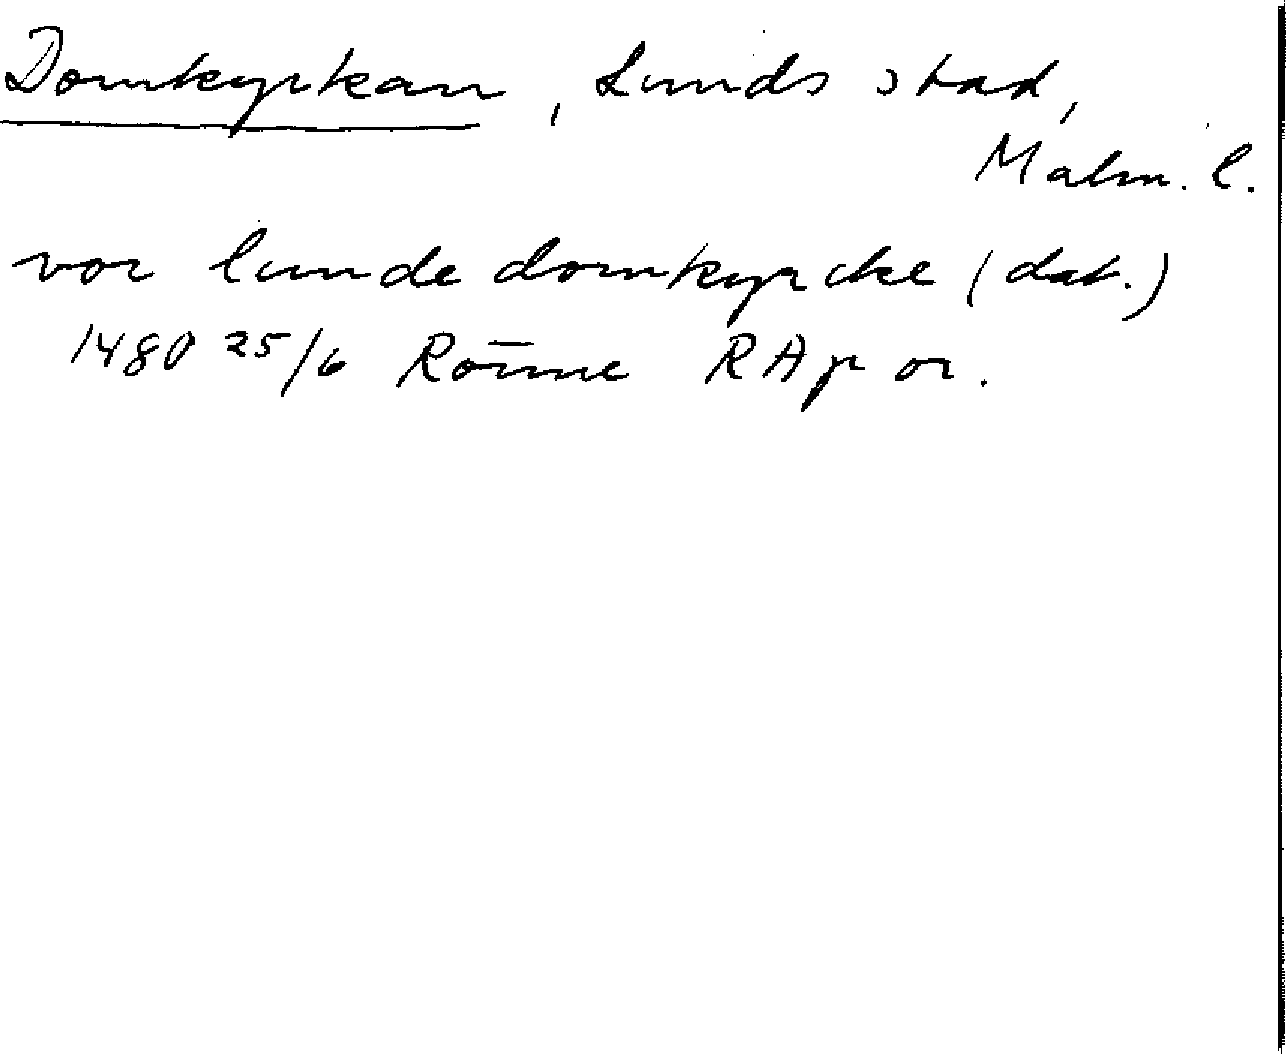 Domkyrkan, Lunds stad,
Malm. l.
vor lunde domkyrcke (dat.)
1480 25/6 Rönne RAp or.